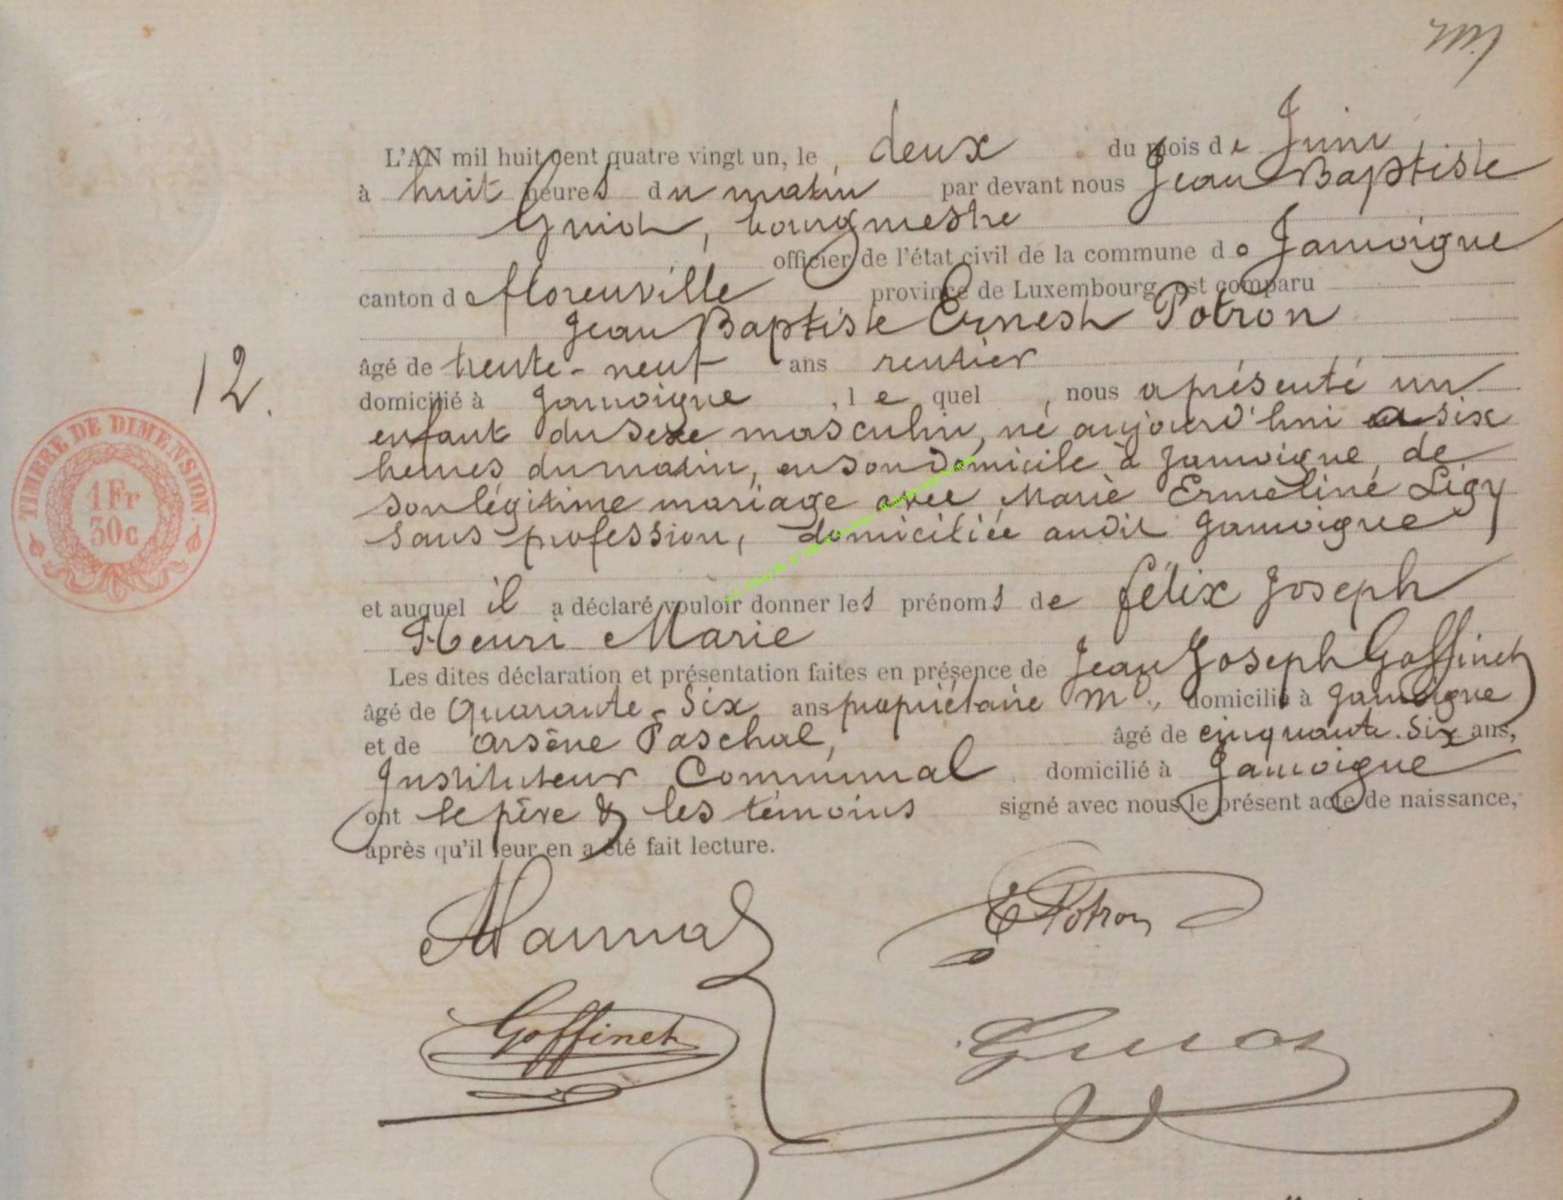 L'AN mil huit cent quatre vingt un, le deux du mois de Juin
à huit heures du matin par devant nous Jean Baptiste
Guiot, bourgmestre
officier de l'état civil de la commune de Jamoigne
canton de florenville province de Luxembourg, est comparu
Jean Baptiste Ernest Potron
âgé de trente-neuf ans rentier
domicilié à Jamoigne, lequel, nous a présenté un
enfant du sexe masculin, né aujourd'hui a six
heures du matin, en son domicile à Jamoigne, de
son légitime mariage avec Marie Ermeline Ligy
sans profession, domiciliée audit Jamoigne
et auquel il a déclaré vouloir donner les prénoms de félix Joseph
Henri Marie
Les dites déclaration et présentation faites en présence de Jean Joseph Goffinet
12.
âgé de Quarante-Six ans propriétaire domicilié à Jamoigne
et de Arsène Paschal, âgé de cinquante-six ans,
Instituteur Communal domicilié à Jamoigne
ont le père & les témoins signé avec nous le présent acte de naissance,
après qu'il leur en a été fait lecture.
E Potron
Goffinet
Guiot
TIMBRE DE DIMENSION
1 Fr
30c.